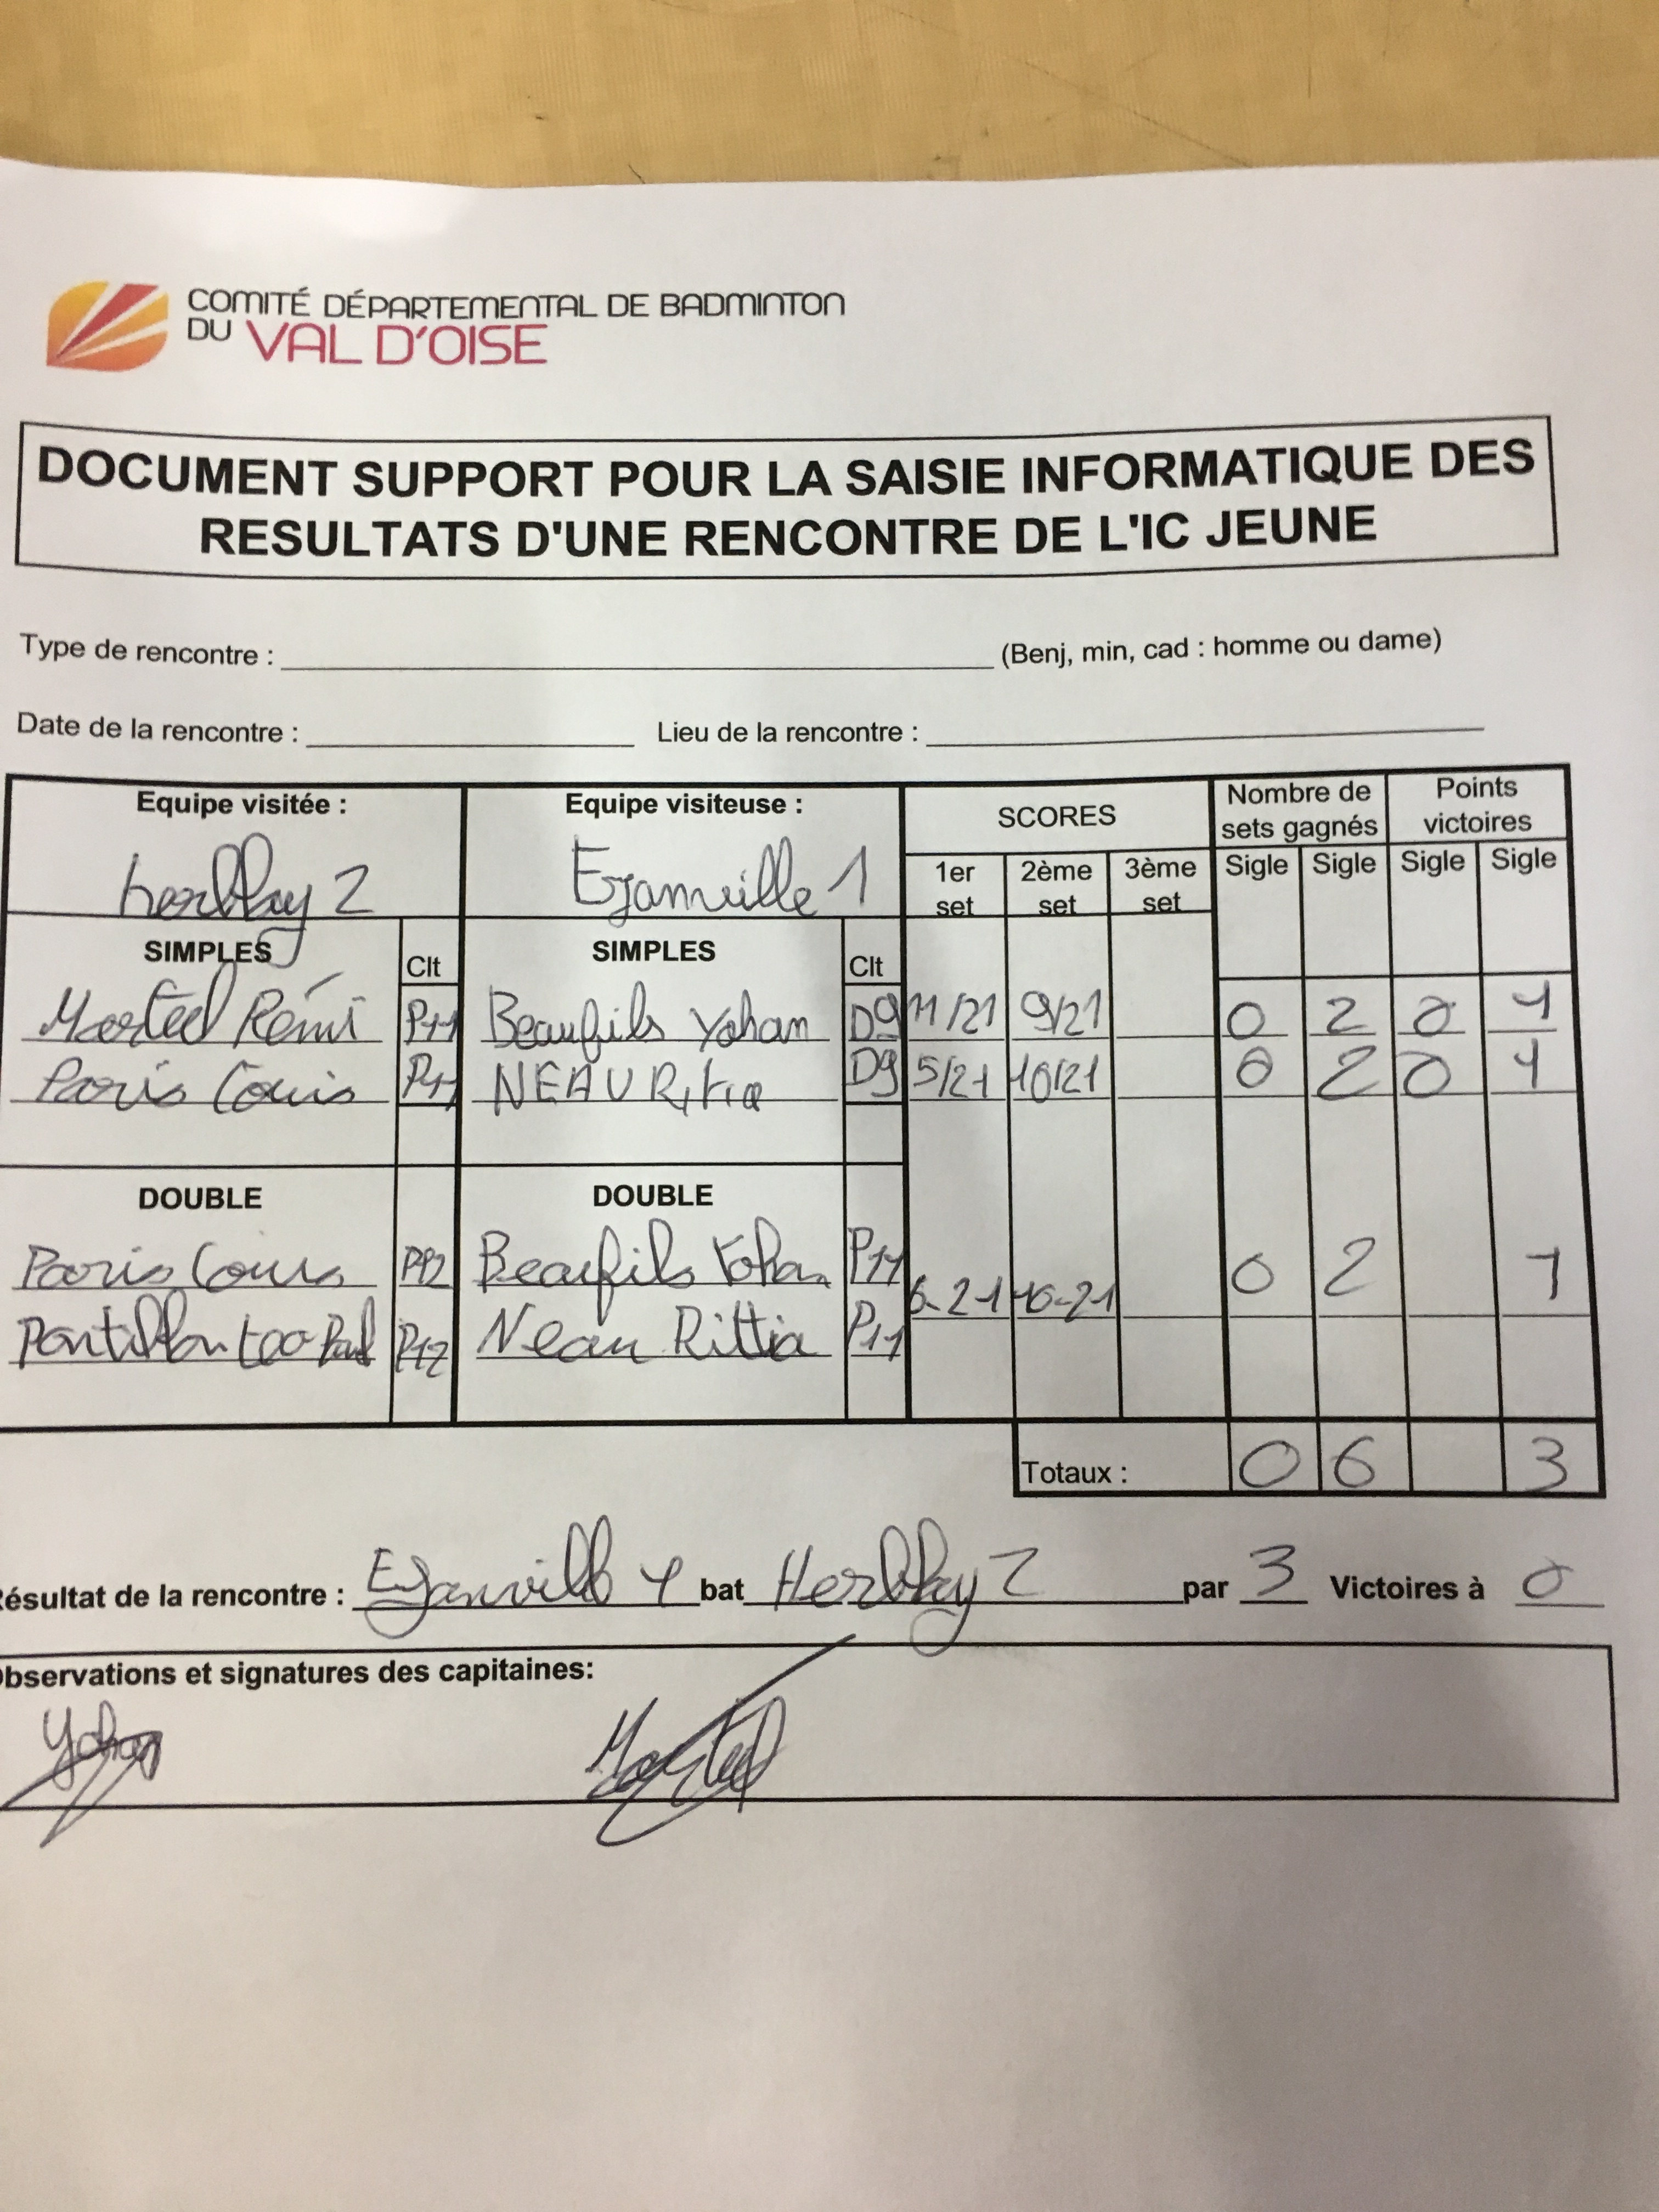 COMITÉ DÉPARTEMENTAL DE BADMINTON
DU VAL D'OISE
DOCUMENT SUPPORT POUR LA SAISIE INFORMATIQUE DES
RESULTATS D'UNE RENCONTRE DE L'IC JEUNE
Type de rencontre : (Benj, min, cad : homme ou dame)
Date de la rencontre : Lieu de la rencontre :
Equipe visitée : Equipe visiteuse : SCORES Nombre de sets gagnés Points victoires
herblay 2 Ezanville 1 1er set 2ème set 3ème set Sigle Sigle Sigle Sigle
SIMPLES Clt SIMPLES Clt
Martel Rémi P11 Beaufils Yohan D9 11/21 9/21 0 2 0 1
Paris Louis P11 NEAU Ritia D9 5/21 10/21 0 2 0 1
DOUBLE DOUBLE
Paris Louis P12 Beaufils Yohan P11 6-21 10-21 0 2 1
Pontillon Leo Paul P12 Neau Rittia P11
Totaux : 0 6 3
ésultat de la rencontre : Ezanville 1 bat Herblay 2 par 3 Victoires à 0
bservations et signatures des capitaines:
Yohan Martel